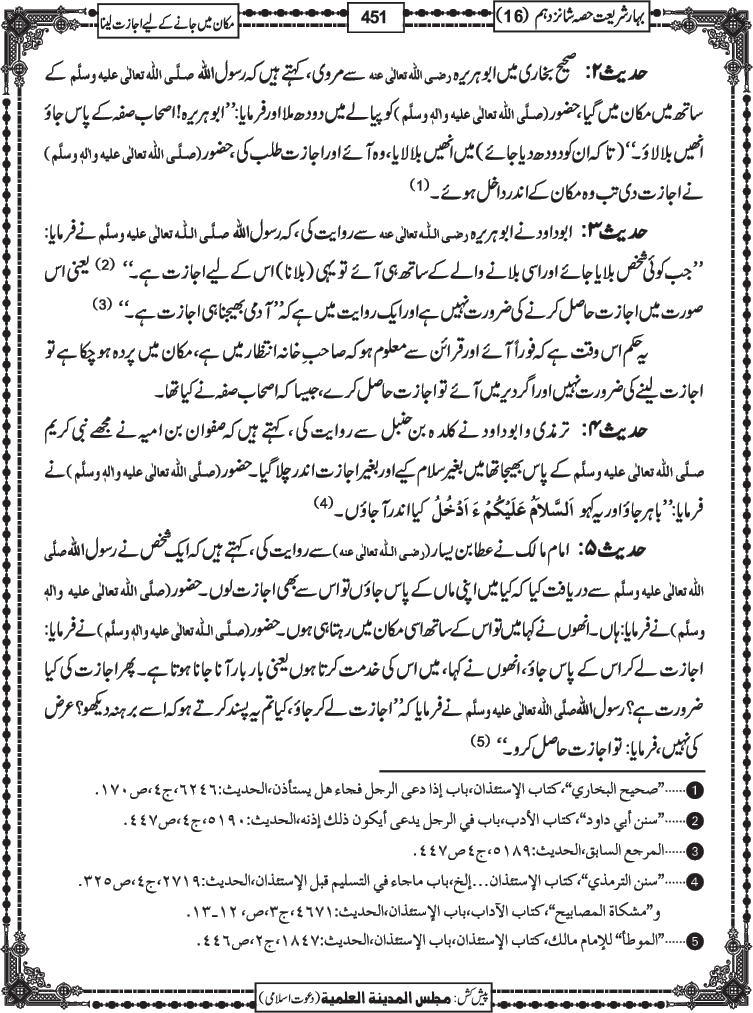 بہار شریعت حصہ شانزدہم (16)
451
مکان میں جانے کے لیے اجازت لینا
حدیث ۲: صحیح بخاری میں ابوہریرہ رضی اللہ تعالٰی عنہ سے مروی، کہتے ہیں کہ رسول اللہ صلَّی اللہ تعالٰی علیہ وسلَّم کے
ساتھ میں مکان میں گیا، حضور (صلَّی اللہ تعالٰی علیہ واٰلہٖ وسلَّم) کو پیالے میں دودھ ملا اور فرمایا: ’’ابوہریرہ! اصحاب صفہ کے پاس جاؤ
انھیں بلا لاؤ۔‘‘ (تاکہ ان کو دودھ دیا جائے) میں انھیں بلا لایا، وہ آئے اور اجازت طلب کی، حضور (صلَّی اللہ تعالٰی علیہ واٰلہٖ وسلَّم)
نے اجازت دی تب وہ مکان کے اندر داخل ہوئے۔ (1)
حدیث ۳: ابو داود نے ابوہریرہ رضی اللہ تعالٰی عنہ سے روایت کی، کہ رسول اللہ صلَّی اللہ تعالٰی علیہ وسلَّم نے فرمایا:
’’جب کوئی شخص بلایا جائے اور اسی بلانے والے کے ساتھ ہی آئے تو یہی (بلانا) اس کے لیے اجازت ہے۔‘‘ (2) یعنی اس
صورت میں اجازت حاصل کرنے کی ضرورت نہیں ہے اور ایک روایت میں ہے کہ ’’آدمی بھیجنا ہی اجازت ہے۔‘‘ (3)
یہ حکم اس وقت ہے کہ فوراً آئے اور قرائن سے معلوم ہو کہ صاحبِ خانہ انتظار میں ہے، مکان میں پردہ ہو چکا ہے تو
اجازت لینے کی ضرورت نہیں اور اگر دیر میں آئے تو اجازت حاصل کرے، جیسا کہ اصحاب صفہ نے کیا تھا۔
حدیث ۴: ترمذی و ابو داود نے کلدہ بن حنبل سے روایت کی، کہتے ہیں کہ صفوان بن امیہ نے مجھے نبی کریم
صلَّی اللہ تعالٰی علیہ وسلَّم کے پاس بھیجا تھا میں بغیر سلام کیے اور بغیر اجازت اندر چلا گیا۔ حضور (صلَّی اللہ تعالٰی علیہ واٰلہٖ وسلَّم) نے
فرمایا: ’’باہر جاؤ اور یہ کہو اَلسَّلَامُ عَلَيْكُمْ ءَ اَدْخُلُ کیا اندر آ جاؤں۔ (4)
حدیث ۵: امام مالک نے عطا بن یسار (رضی اللہ تعالٰی عنہ) سے روایت کی، کہتے ہیں کہ ایک شخص نے رسول اللہ صلَّی
اللہ تعالٰی علیہ وسلَّم سے دریافت کیا کہ کیا میں اپنی ماں کے پاس جاؤں تو اس سے بھی اجازت لوں۔ حضور (صلَّی اللہ تعالٰی علیہ واٰلہٖ
وسلَّم) نے فرمایا: ہاں۔ انھوں نے کہا میں تو اس کے ساتھ اسی مکان میں رہتا ہی ہوں۔ حضور (صلَّی اللہ تعالٰی علیہ واٰلہٖ وسلَّم) نے فرمایا:
اجازت لے کر اس کے پاس جاؤ، انھوں نے کہا، میں اس کی خدمت کرتا ہوں یعنی بار بار آنا جانا ہوتا ہے۔ پھر اجازت کی کیا
ضرورت ہے؟ رسول اللہ صلَّی اللہ تعالٰی علیہ وسلَّم نے فرمایا کہ ’’اجازت لے کر جاؤ، کیا تم یہ پسند کرتے ہو کہ اسے برہنہ دیکھو؟ عرض
کی نہیں، فرمایا: تو اجازت حاصل کرو۔‘‘ (5)
1 ......”صحيح البخاري“، كتاب الإستئذان، باب إذا دعى الرجل فجاء هل يستأذن، الحديث: ٦٢٤٦، ج٤، ص١٧٠.
2 ......”سنن أبي داود“، كتاب الأدب، باب في الرجل يدعى أيكون ذلك إذنه، الحديث: ٥١٩٠، ج٤، ص٤٤٧.
3 ......المرجع السابق، الحديث: ٥١٨٩، ج٤ ص٤٤٧.
4 ......”سنن الترمذي“، كتاب الإستئذان...إلخ، باب ماجاء في التسليم قبل الإستئذان، الحديث: ٢٧١٩، ج٤، ص٣٢٥.
و ”مشكاة المصابيح“، كتاب الآداب، باب الإستئذان، الحديث: ٤٦٧١، ج٣، ص، ١٢-١٣.
5 ......”الموطأ“ للإمام مالك، كتاب الإستئذان، باب الإستئذان، الحديث: ١٨٤٧، ج٢، ص٤٤٦.
پیش کش: مجلس المدينة العلمية (دعوت اسلامی)